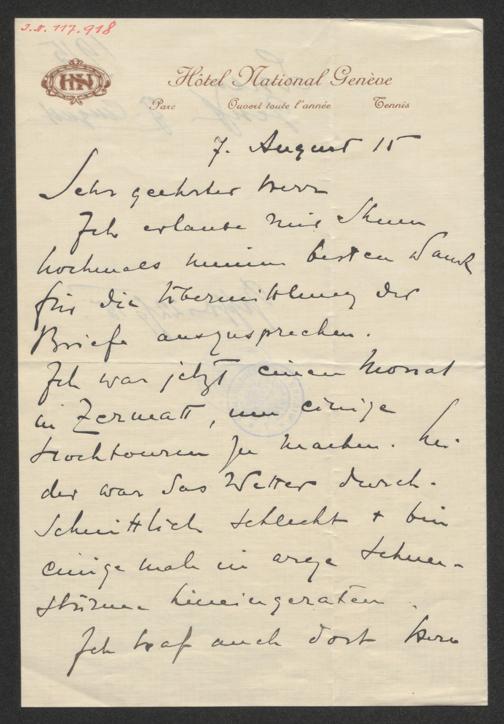 I.N. 117.918
HN
Hôtel National Genève
Parc Ouvert toute l'année Tennis
7. August 15
Sehr geehrter Herr
Ich erlaube mir Ihnen
nochmals meinen besten Dank
für die Übermittlung der
Briefe auszusprechen.
Ich war jetzt einen Monat
in Zermatt, um einige
Hochtouren zu machen. Lei-
der war das Wetter durch-
schnittlich schlecht + bin
einige mal in arge Schnee-
stürme hineingeraten.
Ich traf auch dort Herrn